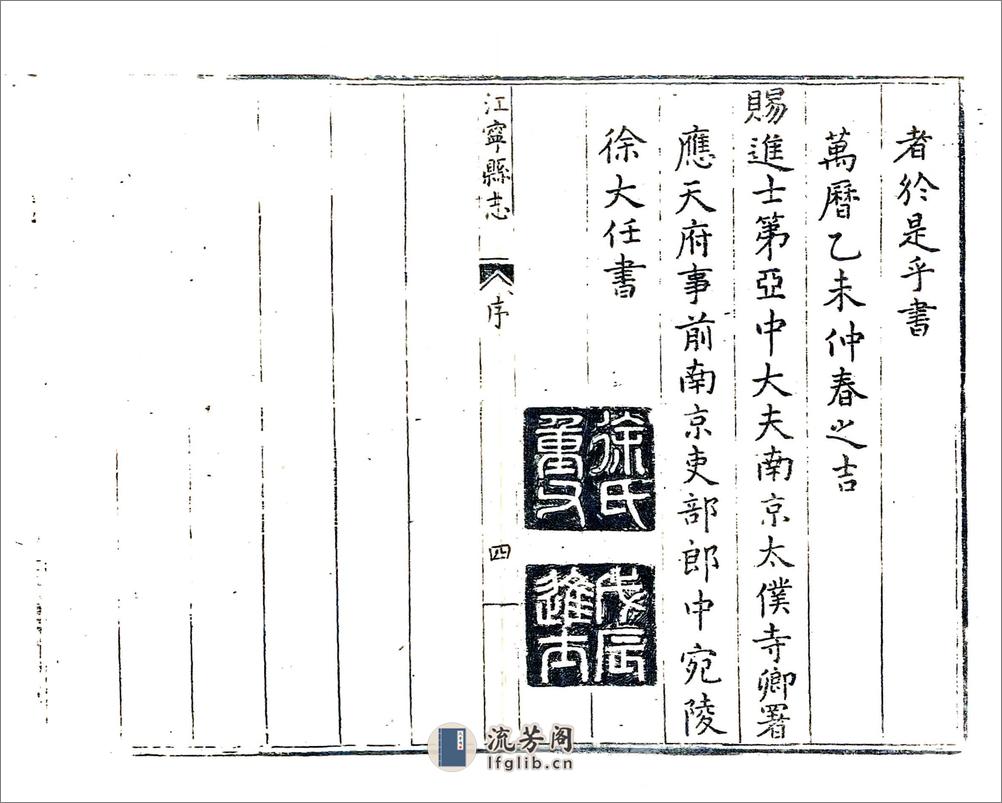 者於是乎書
萬曆乙未仲春之吉
賜進士第亞中大夫南京太僕寺卿署
應天府事前南京吏部郎中宛陵
徐大任書
徐氏重夫
戊辰進士
江寧縣志
序
四
流芳阁
lfglib.cn